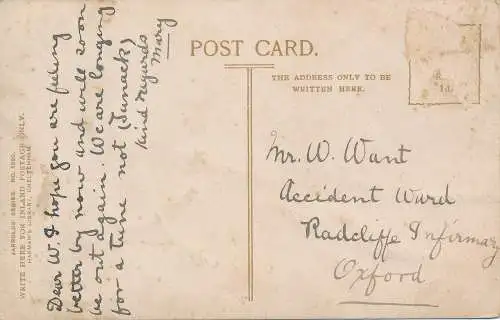 POST CARD.
THE ADDRESS ONLY TO BE
WRITTEN HERE.
1d.
JARROLDS' SERIES NO.
WRITE HERE FOR INLAND POSTAGE ONLY.
HARMAN'S LIBRARY, CHELTENHAM.
Dear W. I hope you are feeling
better by now and will soon
be out again. We are longing
for a tune not (Junack)
Kind regards
Mary
Mr. W. Want
Accident Ward
Radcliffe Infirmary
Oxford